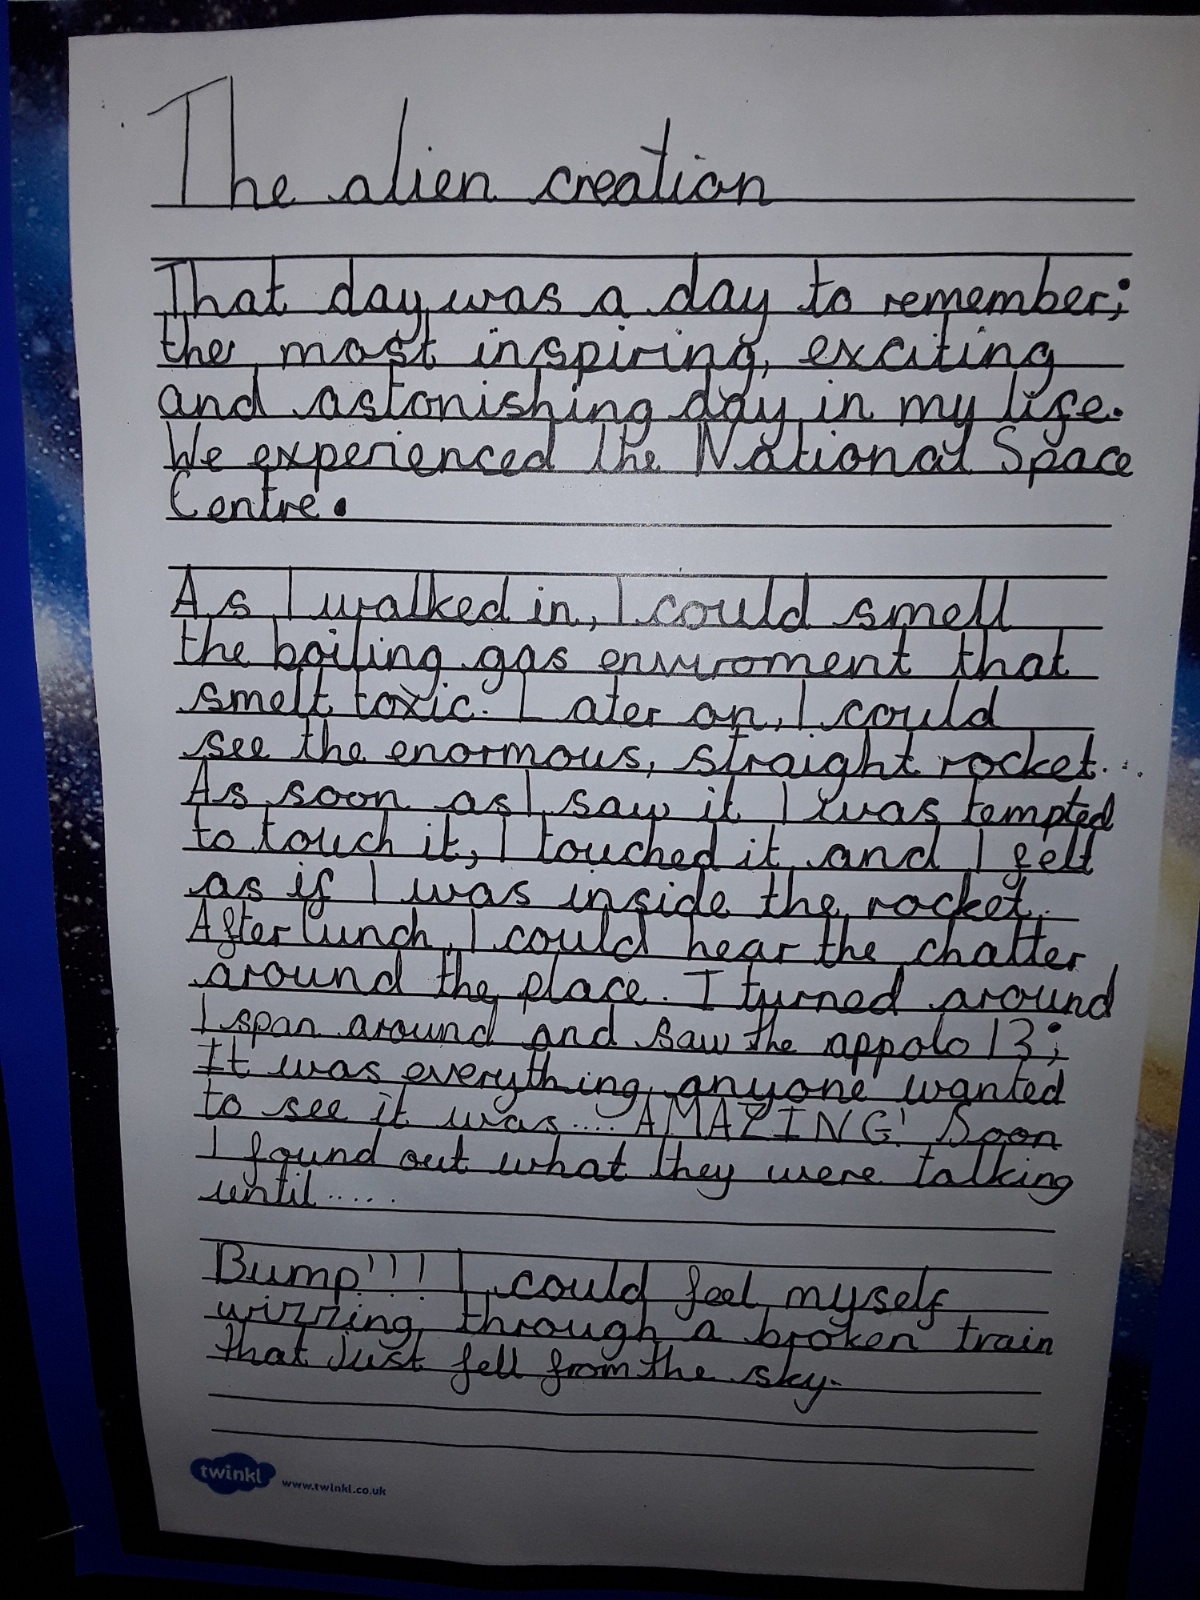 The alien creation
That day was a day to remember;
the most inspiring, exciting
and astonishing day in my life.
We experienced the National Space
Centre.
As I walked in, I could smell
the boiling gas enviroment that
smelt toxic. Later on, I could
see the enormous, straight rocket...
As soon as I saw it I was tempted
to touch it, I touched it and I felt
as if I was inside the rocket.
After lunch, I could hear the chatter
around the place. I turned around
I span around and saw the appolo 13;
It was everything anyone wanted
to see it was.... AMAZING! Soon
I found out what they were talking
until.....
Bump!!! I could feel myself
wizzing through a broken train
that just fell from the sky.
twinkl www.twinkl.co.uk